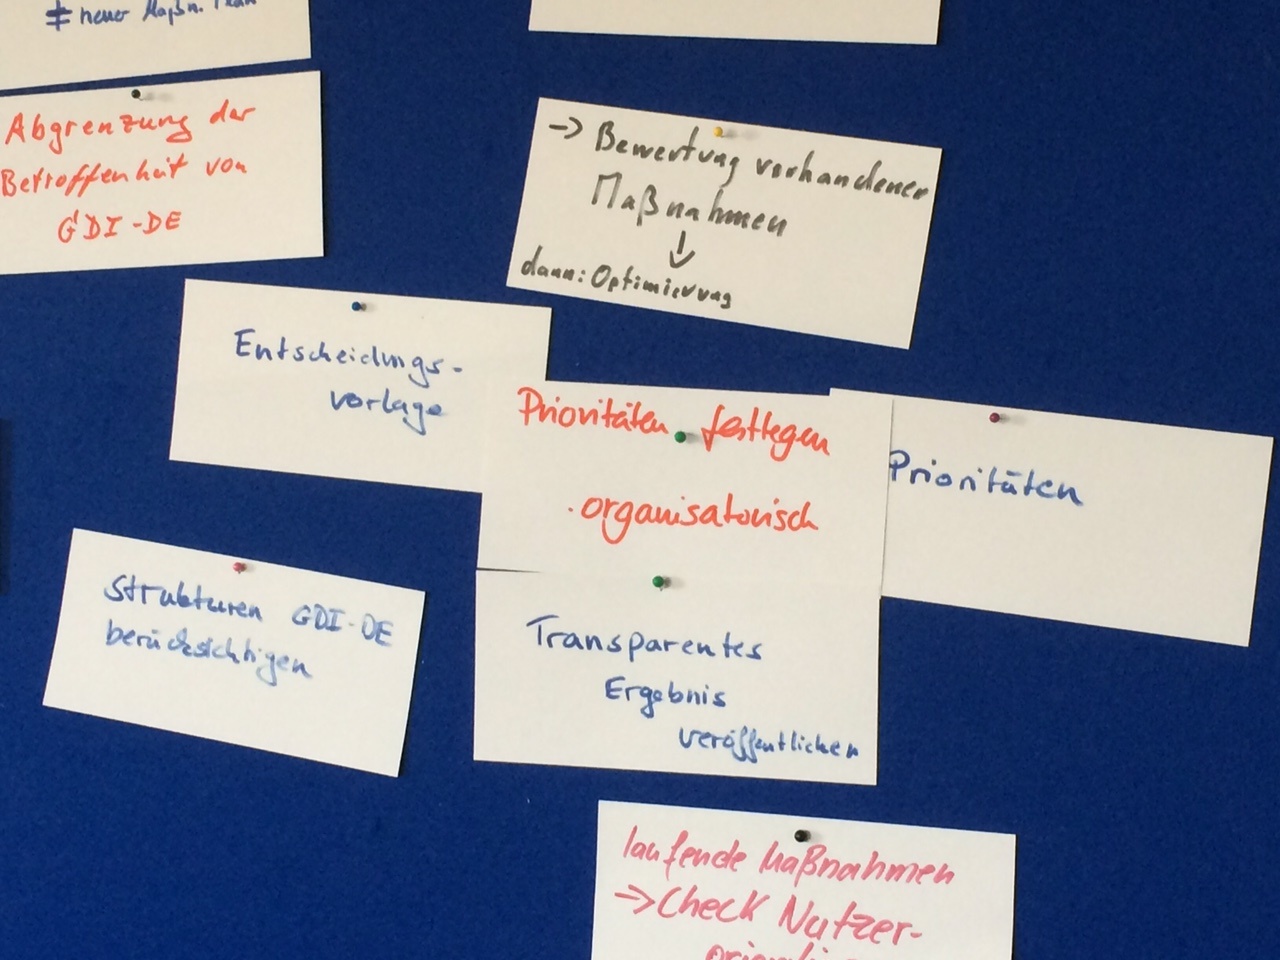 ≠ neuer Maßn.
Abgrenzung der
Betroffenheit von
GDI-DE
→ Bewertung vorhandener
Maßnahmen
↓
dann: Optimierung
Entscheidungs-
vorlage
Prioritäten festlegen
· organisatorisch
Prioritäten
Strukturen GDI-DE
berücksichtigen
Transparentes
Ergebnis
veröffentlichen
laufende Maßnahmen
→ Check Nutzer-